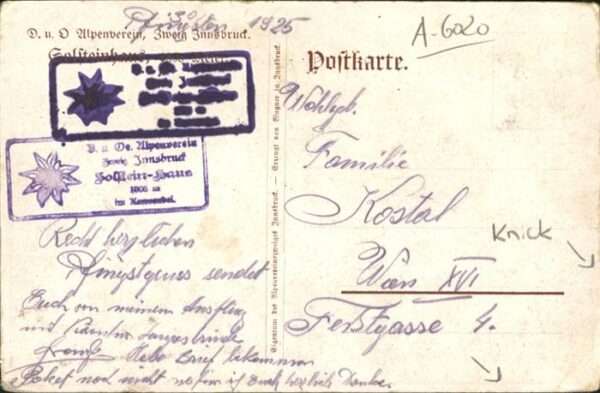 Pfingsten 1925
D. u. O Alpenverein, Zweig Innsbruck.
Solsteinhaus,
A-6020
Postkarte.
D. u. Oe. Alpenverein
Zweig Innsbruck
Solstein-Haus
1806 m
im Karwendel.
Wohlgb.
Familie
Kostal
Wien XVI
Ferstgasse 4.
Knick
Recht herzlichen
Pfingstgruss sendet
Euch von meinem Ausflug
und
Franz Habe Brief bekommen
Paket noch nicht wofür ich Euch herzlich Danke.
Eigentum des Alpenvereinszweiges Innsbruck. — Erzeugt von Wagner in Innsbruck.